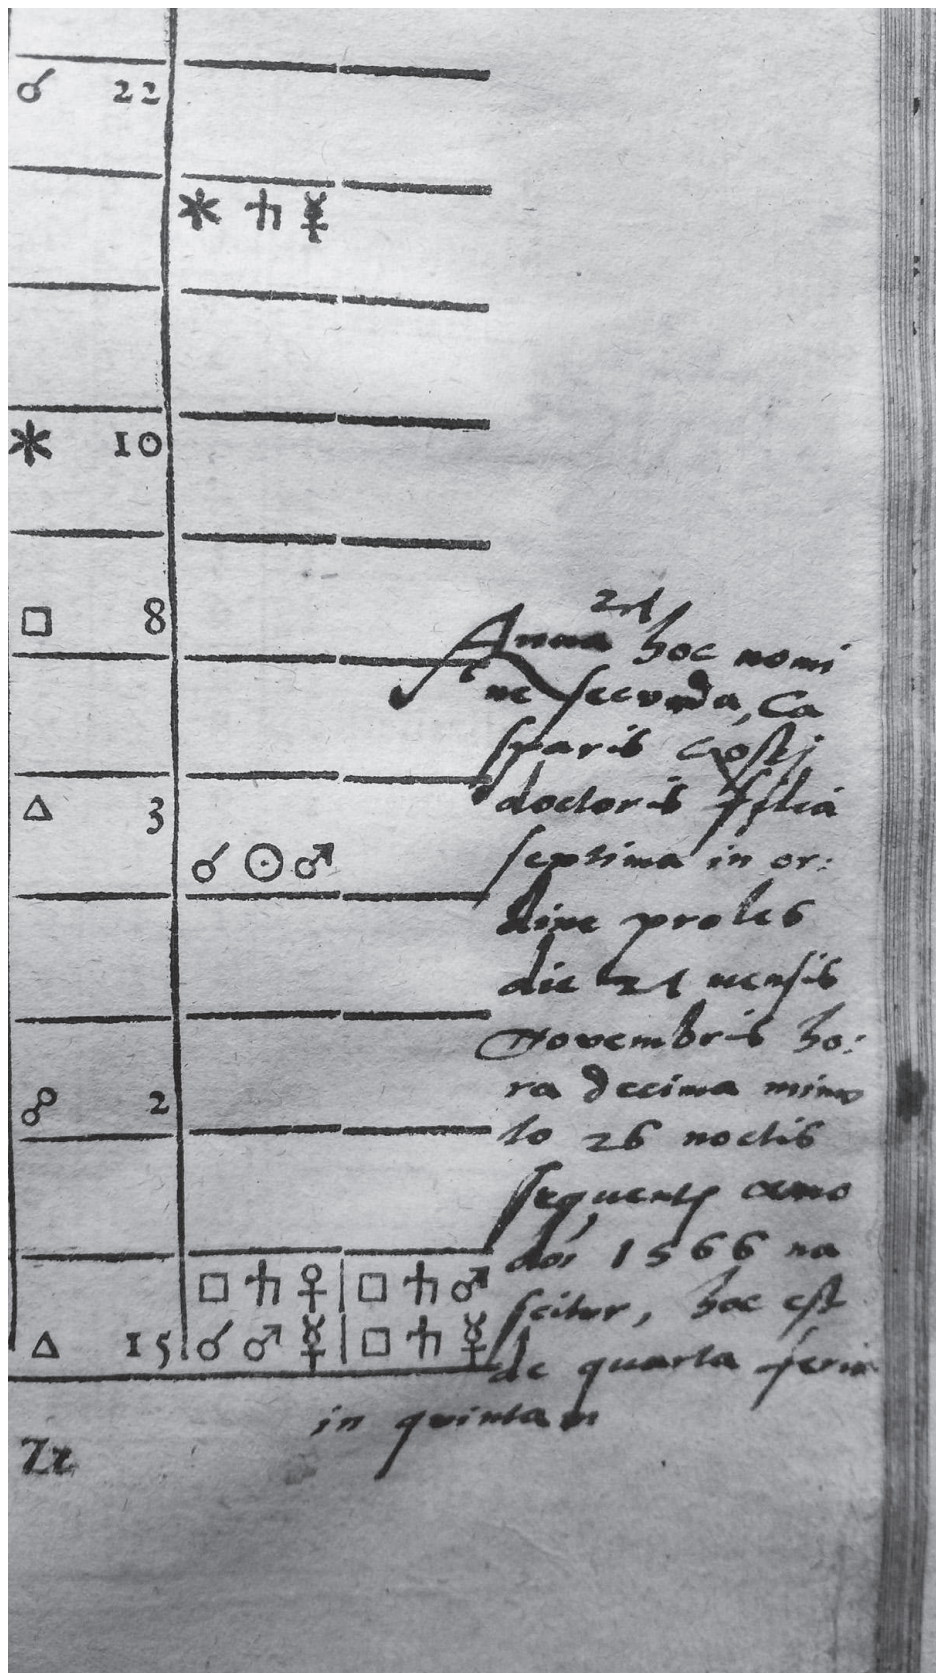 ☌ 22
⚹ ♄ ☿
⚹ 10
□ 8
21
Anna hoc nomi
ne secunda, Ca
sparis
doctoris filia
septima in or:
dine proles
die 21 mensis
Novembris ho:
ra decima minu
to 26 noctis
sequentis anno
doi 1566 na
scitur, hoc est
de quarta feria
in quintam
△ 3
☌ ☉ ♂
☍ 2
□ ♄ ♀ | □ ♄ ♂
△ 15 ☌ ♂ ☿ | □ ♄ ☿